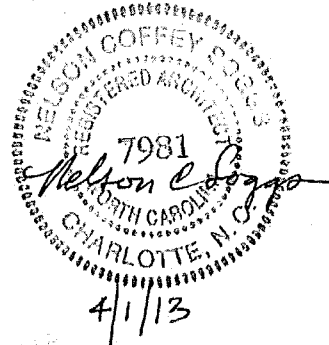 NELSON COFFEY SOGGS
REGISTERED ARCHITECT
7981
Nelson C Soggs
NORTH CAROLINA
CHARLOTTE, N. C.
4/1/13